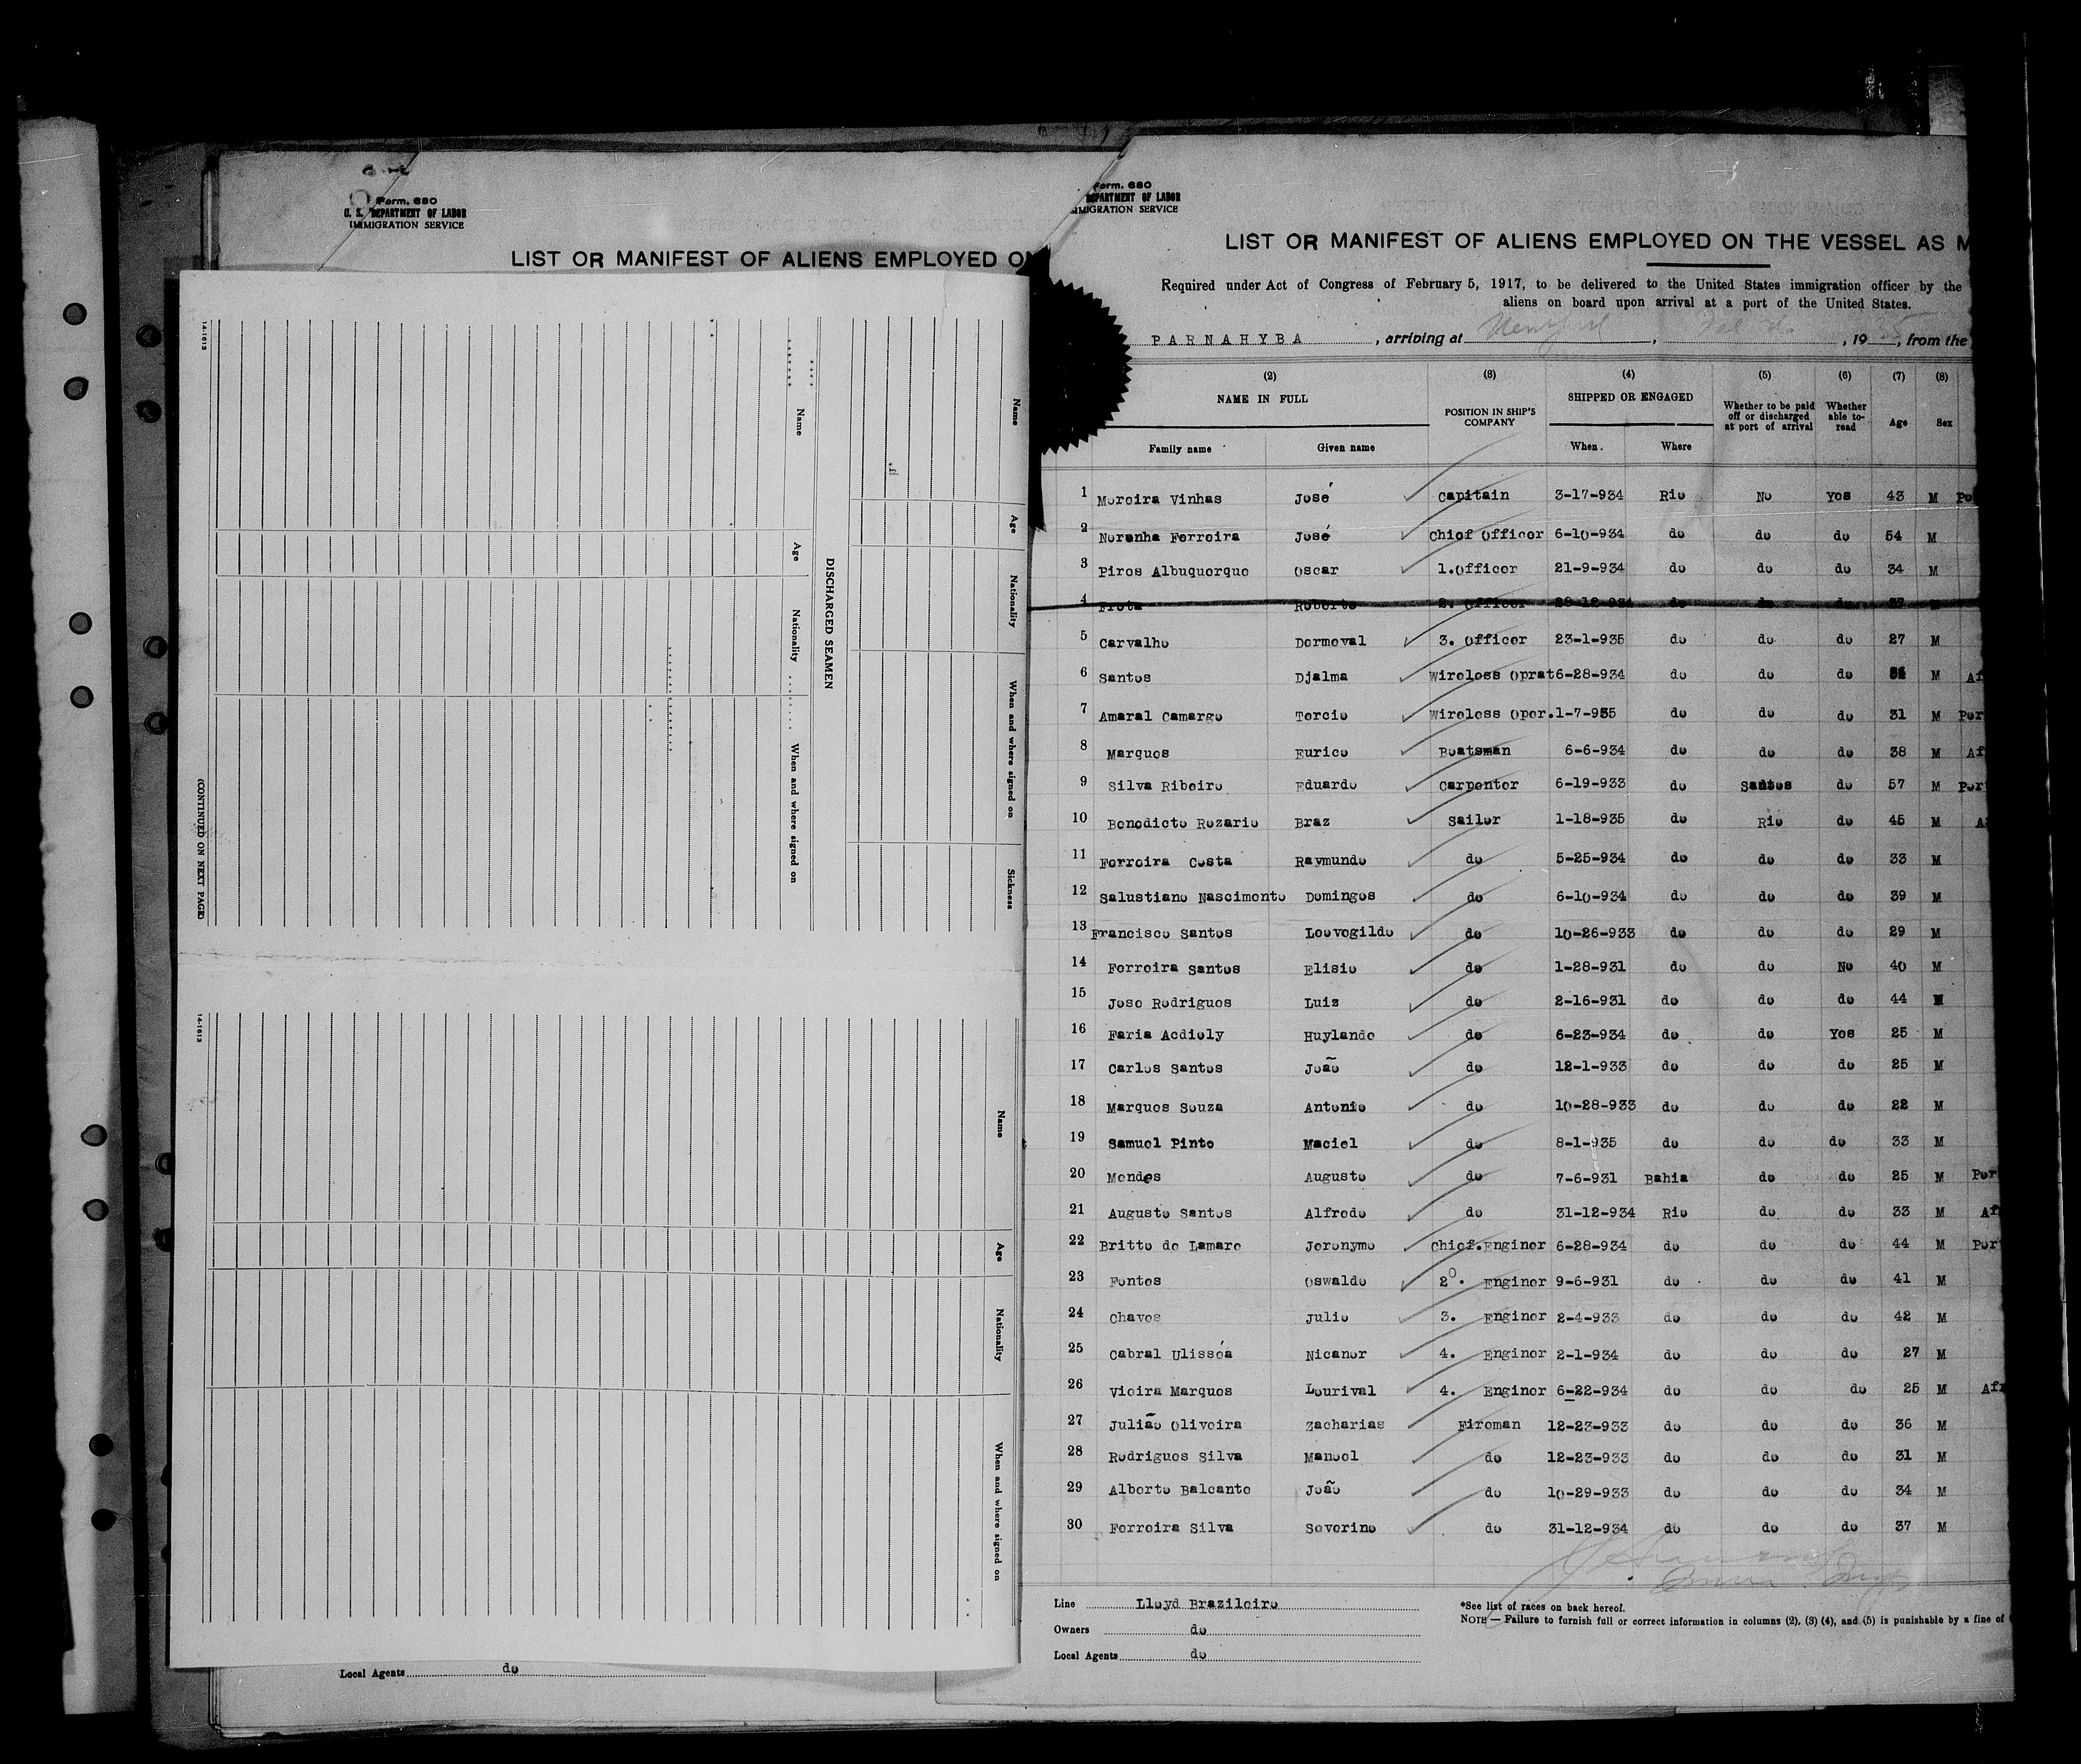 Form. 680
U. S. DEPARTMENT OF LABOR
IMMIGRATION SERVICE
LIST OR MANIFEST OF ALIENS EMPLOYED ON
Name Age Nationality When and where signed on Sickness
DISCHARGED SEAMEN
Name Age Nationality When and where signed on
14-1613
(CONTINUED ON NEXT PAGE)
Name Age Nationality When and where signed on
14-1613
Local Agents do
Form. 680
DEPARTMENT OF LABOR
IMMIGRATION SERVICE
LIST OR MANIFEST OF ALIENS EMPLOYED ON THE VESSEL AS M
Required under Act of Congress of February 5, 1917, to be delivered to the United States immigration officer by the
aliens on board upon arrival at a port of the United States.
PARNAHYBA, arriving at , 1935, from the
(2) (3) (4) (5) (6) (7) (8)
NAME IN FULL POSITION IN SHIP'S COMPANY SHIPPED OR ENGAGED Whether to be paid off or discharged at port of arrival Whether able to- read Age Sex
Family name Given name When Where
1 Moreira Vinhas José Capitain 3-17-934 Rio No Yes 43 M Po
2 Noronha Ferreira José Chief Officer 6-10-934 do do do 54 M
3 Pires Albuquerque Oscar 1.Officer 21-9-934 do do do 34 M
4 Frota Roberto 2. Officer 28-12-934 do do do 37 M
5 Carvalho Dormeval 3. Officer 23-1-935 do do do 27 M
6 Santos Djalma Wireless Oprat 6-28-934 do do do M Af
7 Amaral Camargo Tercio Wireless Oper. 1-7-935 do do do 31 M Por
8 Marques Eurico Boatsman 6-6-934 do do do 38 M Af
9 Silva Ribeiro Eduardo Carpenter 6-19-933 do Santos do 57 M Por
10 Benedicto Rozario Braz Sailor 1-18-935 do Rio do 45 M A
11 Ferreira Costa Raymundo do 5-25-934 do do do 33 M
12 Salustiano Nascimento Domingos do 6-10-934 do do do 39 M
13 Francisco Santos Leovegildo do 10-26-933 do do do 29 M
14 Ferreira Santos Elisio do 1-28-931 do do No 40 M
15 Jose Rodrigues Luiz do 2-16-931 do do do 44 M
16 Faria Acdioly Huylando do 6-23-934 do do Yes 25 M
17 Carlos Santos João do 12-1-933 do do do 25 M
18 Marques Souza Antonio do 10-28-933 do do do 22 M
19 Samuel Pinto Maciel do 8-1-935 do do do 33 M
20 Mendes Augusto do 7-6-931 Bahia do do 25 M Por
21 Augusto Santos Alfredo do 31-12-934 Rio do do 33 M Af
22 Britto de Lamare Jeronymo Chief.Enginer 6-28-934 do do do 44 M Por
23 Fontes Oswaldo 2º. Enginer 9-6-931 do do do 41 M
24 Chaves Julio 3. Enginer 2-4-933 do do do 42 M
25 Cabral Ulisséa Nicanor 4. Enginer 2-1-934 do do do 27 M
26 Vieira Marques Lourival 4. Enginer 6-22-934 do do do 25 M Afr
27 Julião Oliveira Zacharias Fireman 12-23-933 do do do 36 M
28 Rodrigues Silva Manoel do 12-23-933 do do do 31 M
29 Alberto Balcante João do 10-29-933 do do do 34 M
30 Ferreira Silva Severino do 31-12-934 do do do 37 M
Line Lloyd Brazileiro
Owners do
Local Agents do
*See list of races on back hereof.
NOTE — Failure to furnish full or correct information in columns (2), (3) (4), and (5) is punishable by a fine of